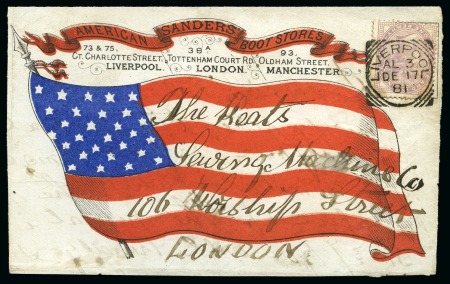 AMERICAN SANDERS BOOT STORES
73 & 75, 38A 93,
GT. CHARLOTTE STREET, TOTTENHAM COURT RD. OLDHAM STREET,
LIVERPOOL. LONDON. MANCHESTER.
LIVERPOOL
AL 3
DE 17
81
The Keats
Sewing Machine Co
106 Worship Street
LONDON